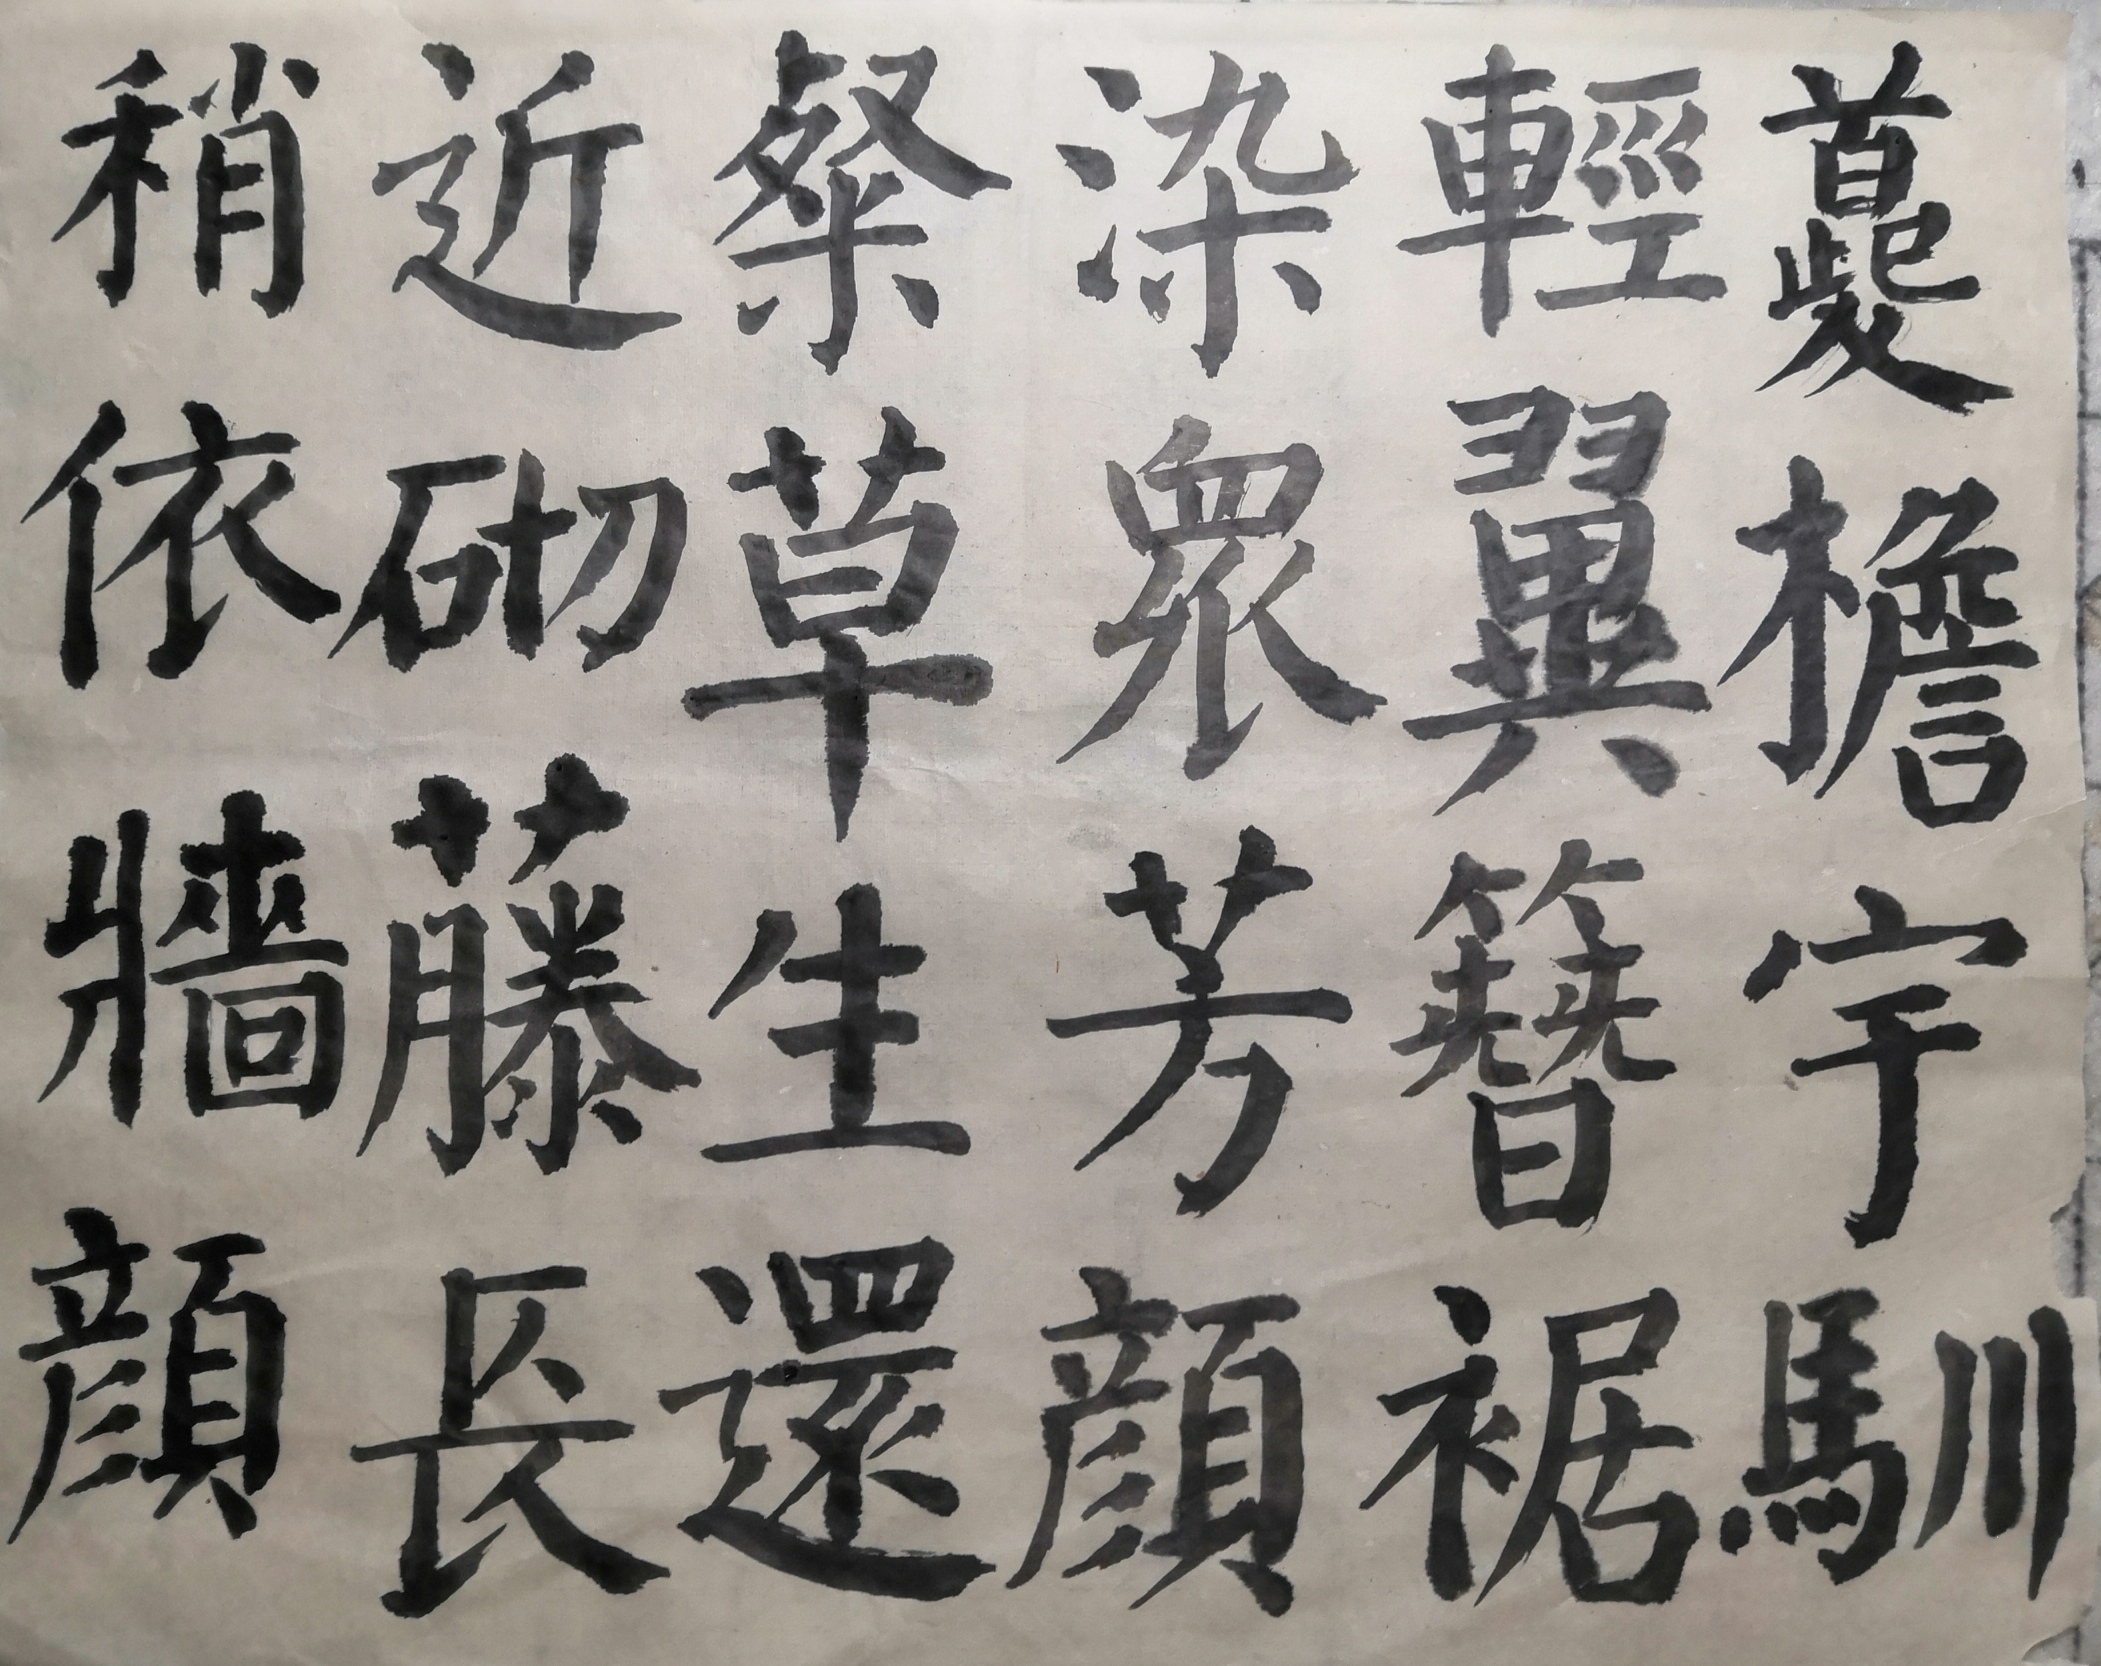 夔檐宇馴
輕翼簪裾
染衆芳顔
粲草生還
近砌藤長
稍依牆顔